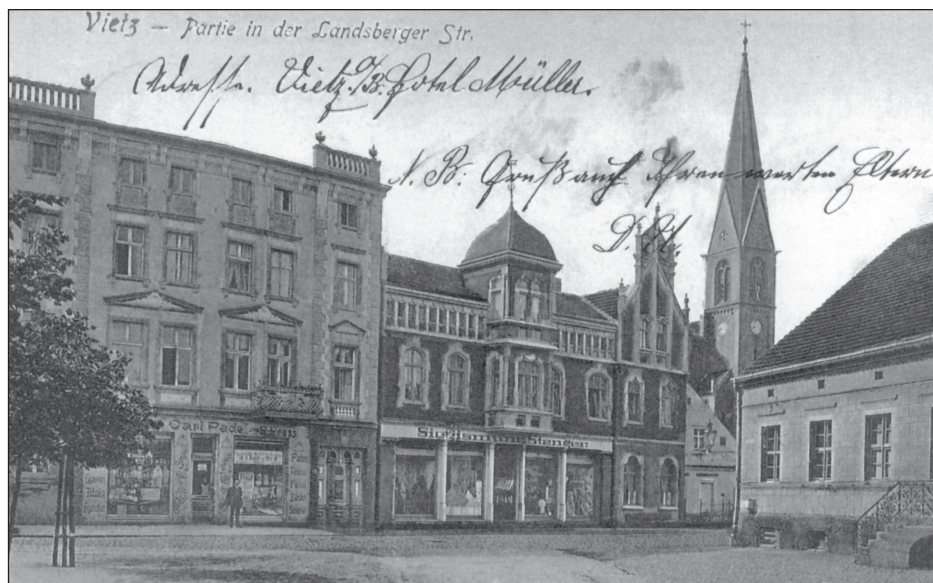 Vietz — Partie in der Landsberger Str.
Adresse. Vietz a/B. Hotel Müller.
N. B: Gruß auch Ihren werten Eltern
Carl Pade